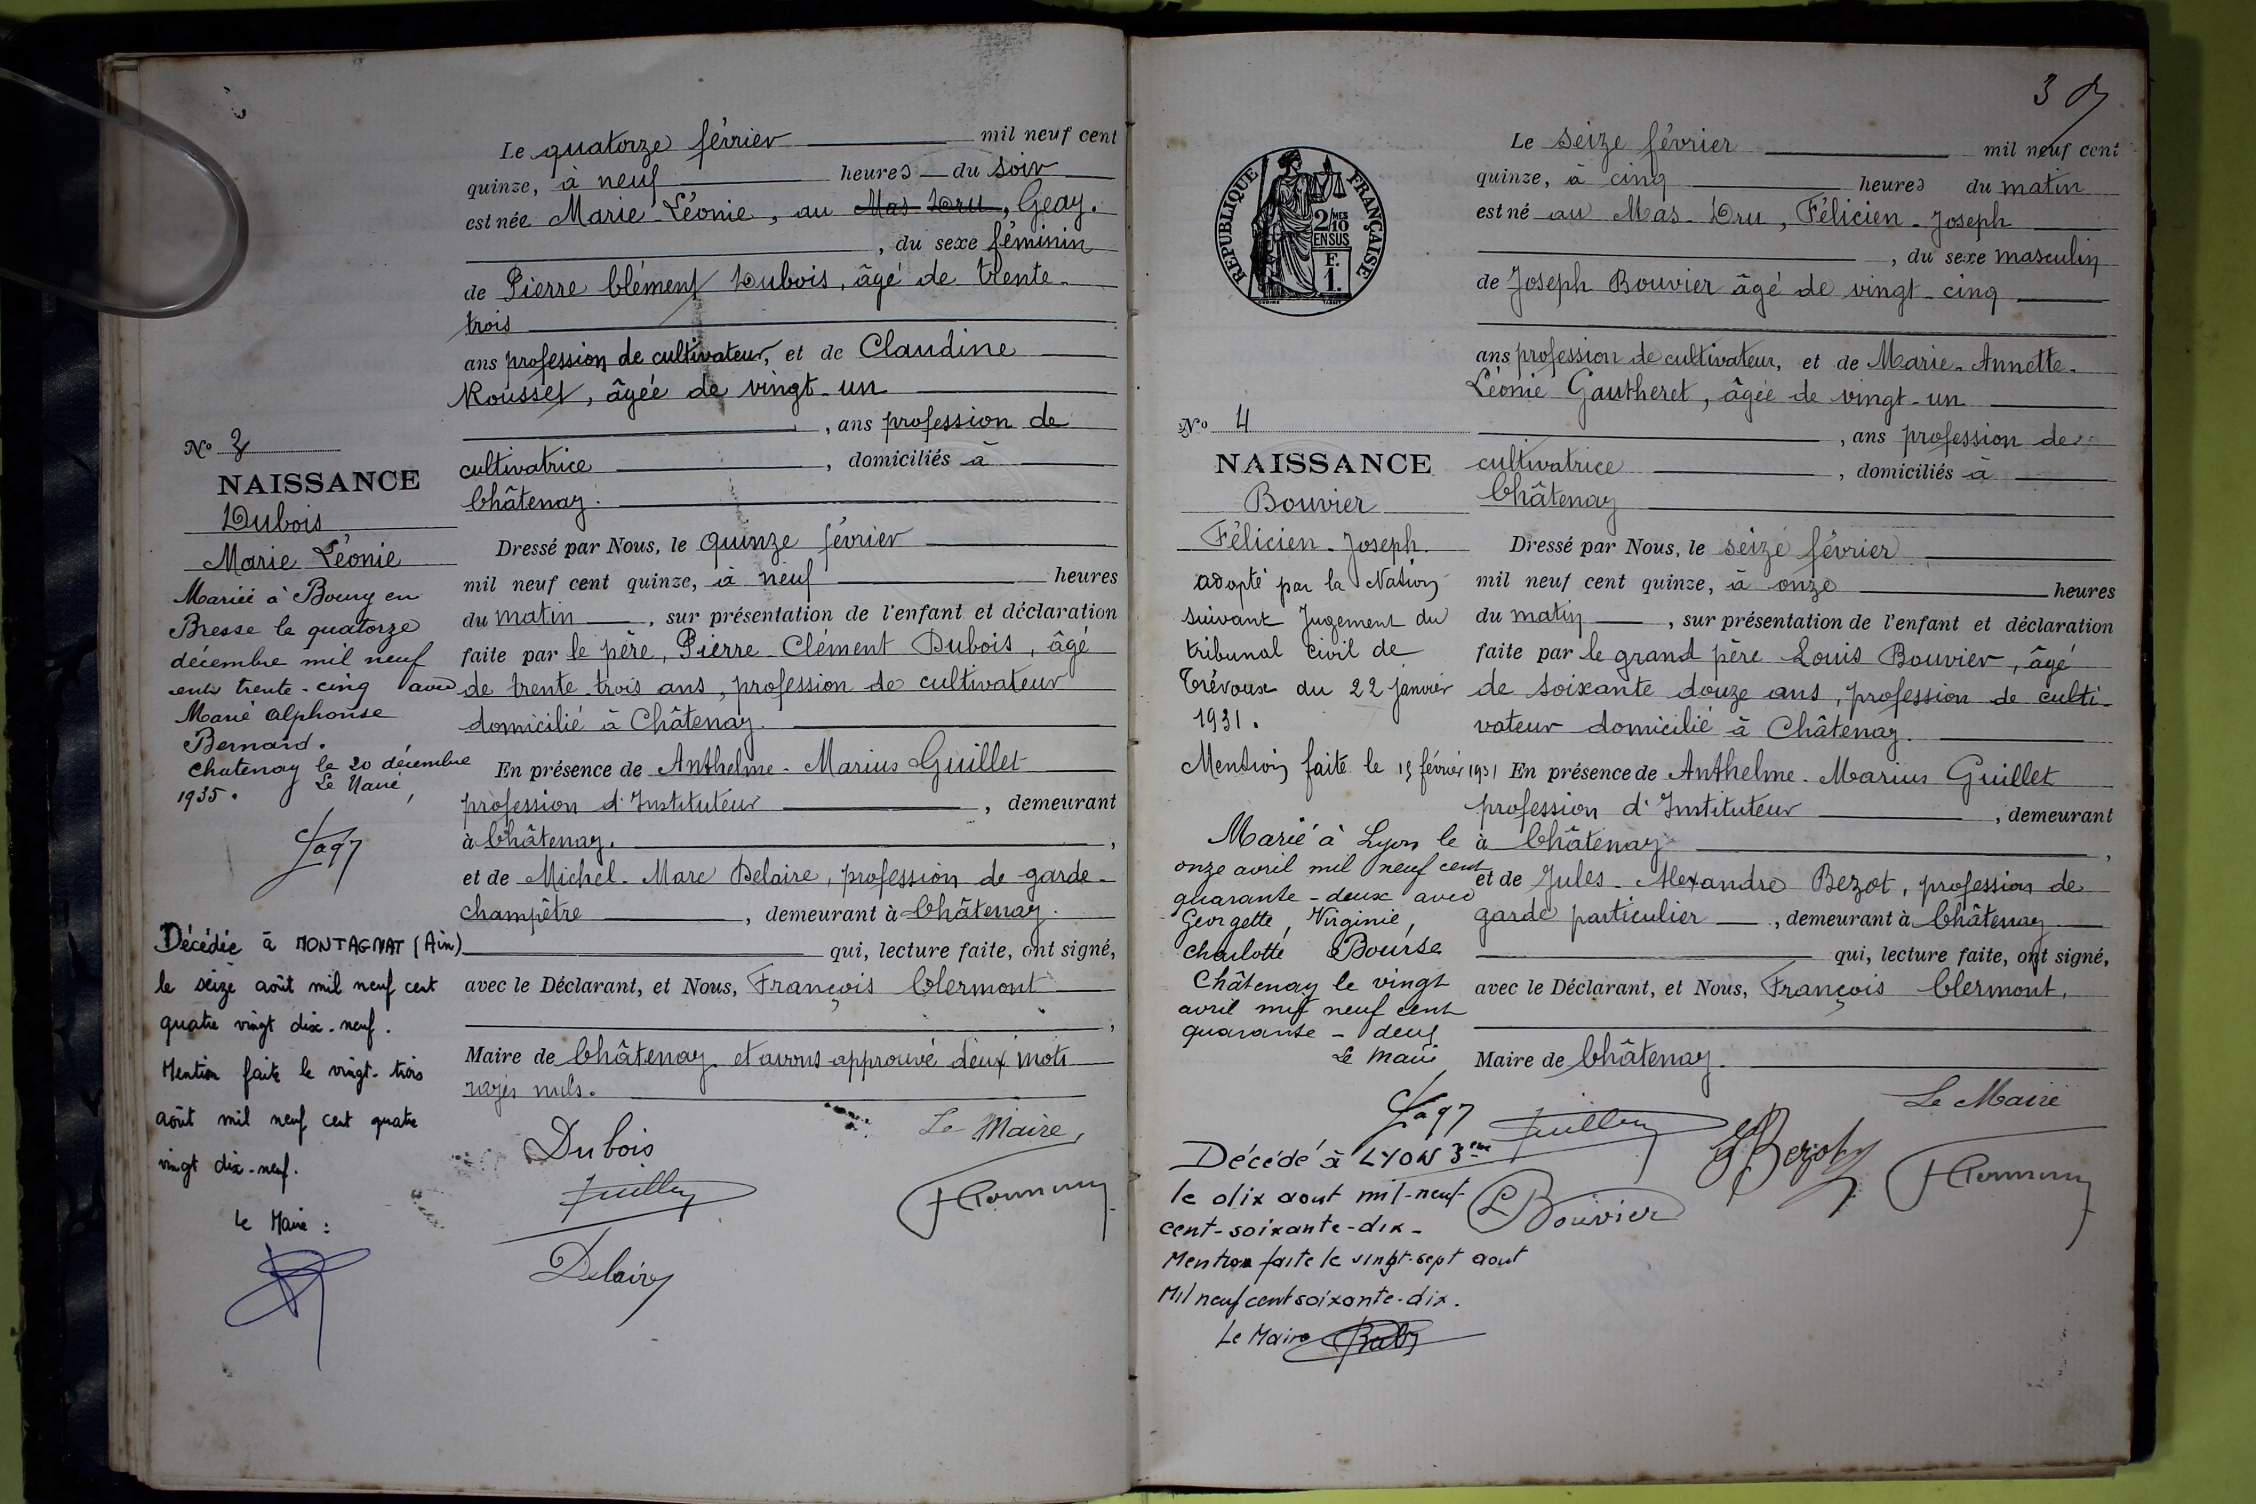 Le quatorze février mil neuf cent
quinze, à neuf heures du soir
est née Marie-Léonie, au Mas-Dru, Geay.
, du sexe féminin
de Pierre Clément Dubois, âgé de trente-
trois
ans profession de cultivateur, et de Claudine
Rousset, âgée de vingt-un
, ans profession de
cultivatrice , domiciliés à
Châtenay.
Dressé par Nous, le quinze février
mil neuf cent quinze, à neuf heures
du matin , sur présentation de l'enfant et déclaration
faite par le père, Pierre Clément Dubois, âgé
de trente-trois ans, profession de cultivateur
domicilié à Châtenay.
En présence de Anthelme-Marius Guillet
profession d'Instituteur , demeurant
à Châtenay. ,
et de Michel-Marc Delaire, profession de garde-
champêtre , demeurant à Châtenay.
qui, lecture faite, ont signé,
avec le Déclarant, et Nous, François Clermont
,
Maire de Châtenay et avons approuvé deux mots
rayés nuls.
Dubois
Le Maire,
Delaire
No 3
NAISSANCE
Dubois
Marie Léonie
Mariée à Bourg en
Bresse le quatorze
décembre mil neuf
cent trente-cinq avec
Marie Alphonse
Bernard.
Chatenay le 20 décembre
1935. Le Maire,
Décédée à MONTAGNAT (Ain)
le seize août mil neuf cent
quatre vingt dix-neuf.
Mention faite le vingt-trois
août mil neuf cent quatre
vingt dix-neuf.
Le Maire :
3
RÉPUBLIQUE FRANÇAISE
2/10 MES
EN SUS
F.
1.
Le seize février mil neuf cent
quinze, à cinq heures du matin
est né au Mas-Dru, Félicien-Joseph
, du sexe masculin
de Joseph Bouvier âgé de vingt-cinq
ans profession de cultivateur, et de Marie-Annette-
Léonie Gautheret, âgée de vingt-un
, ans profession de
cultivatrice , domiciliés à
Châtenay
Dressé par Nous, le seize février
mil neuf cent quinze, à onze heures
du matin , sur présentation de l'enfant et déclaration
faite par le grand père Louis Bouvier, âgé
de soixante douze ans, profession de culti-
vateur domicilié à Châtenay.
En présence de Anthelme-Marius Guillet
profession d'Instituteur , demeurant
à Châtenay ,
et de Jules-Alexandre Bezot, profession de
garde particulier , demeurant à Châtenay
qui, lecture faite, ont signé,
avec le Déclarant, et Nous, François Clermont,
Maire de Châtenay.
Le Maire
JBezot
L Bouvier
No 4
NAISSANCE
Bouvier
Félicien-Joseph.
adopté par la Nation
suivant Jugement du
tribunal civil de
Trévoux du 22 janvier
1931.
Mention faite le 15 février 1931
Marié à Lyon le
onze avril mil neuf cent
quarante-deux avec
Georgette, Virginie,
Charlotte Bourse
Châtenay le vingt
avril mil neuf cent
quarante-deux
Le Maire
Décédé à LYON 3ème
le dix aout mil-neuf-
cent-soixante-dix-
Mention faite le vingt-sept aout
Mil neuf cent soixante-dix.
Le Maire